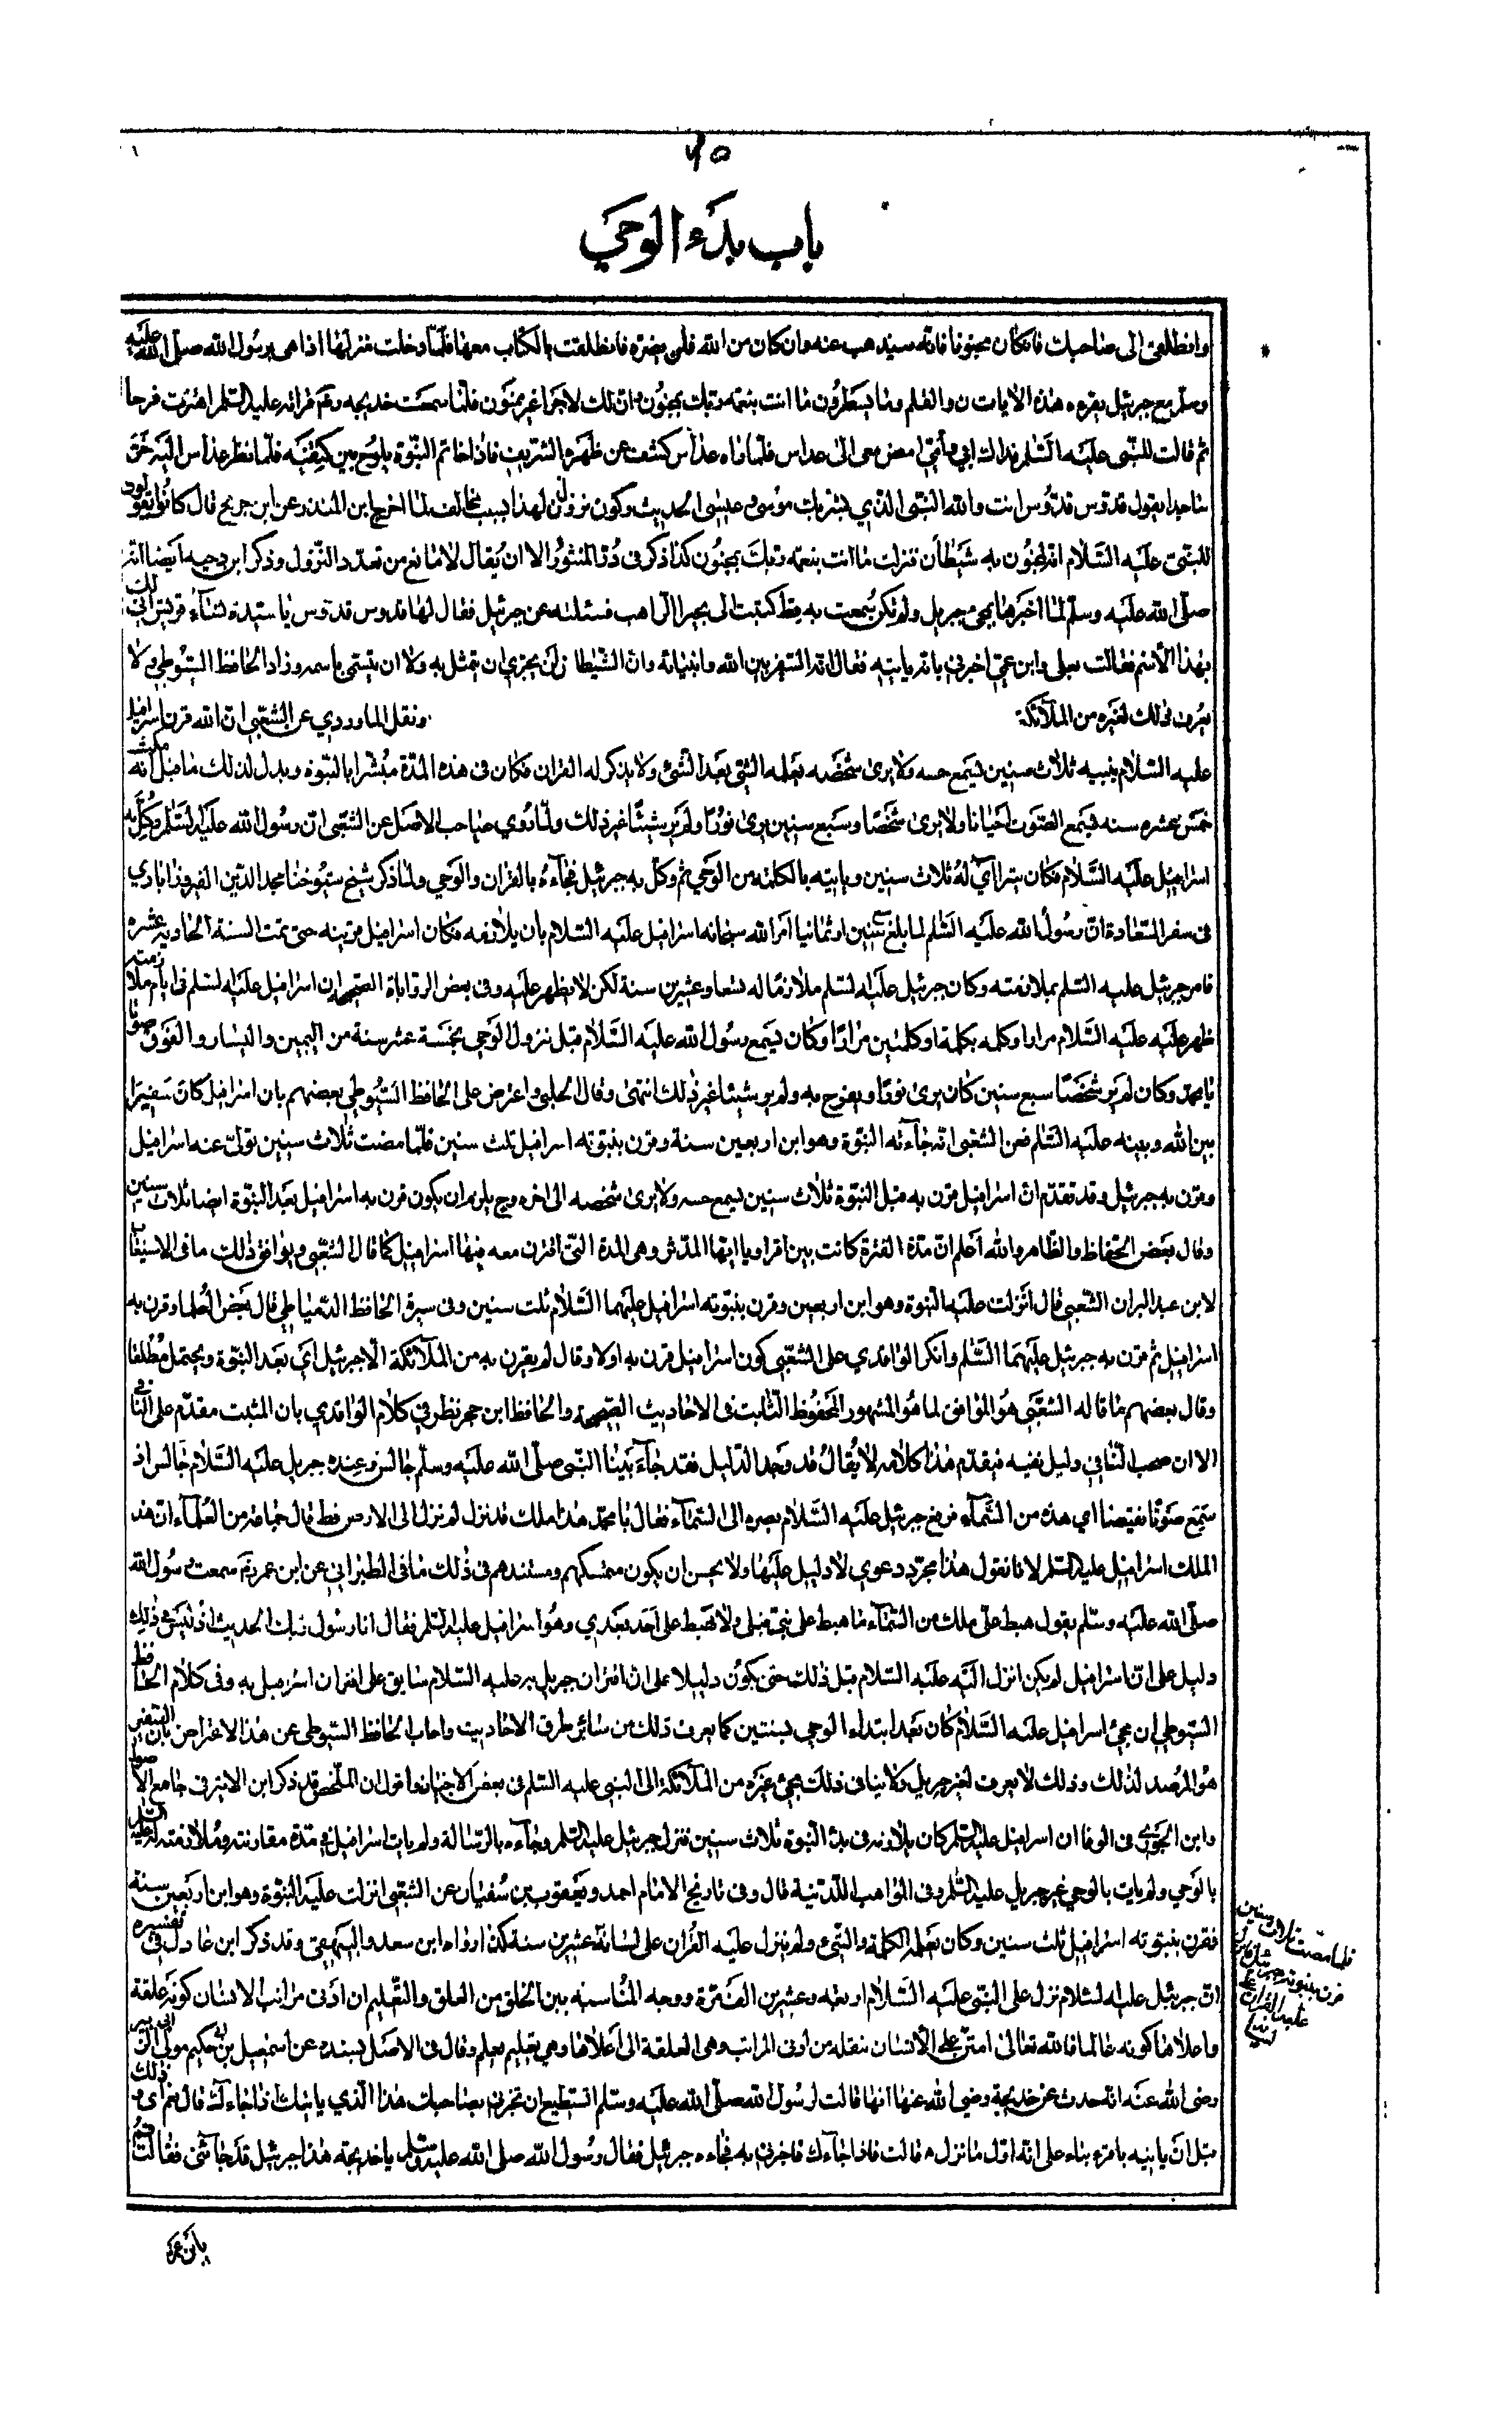 ٧٥
باب بدء الوحي
وانطلقي الى صاحبك فان كان مجنونا فانه سيذهب عنه وان كان من الله فلن يضره فانطلقت بالكتاب معها فلما دخلت منزلها اذا هي برسول الله صلى الله عليه
وسلم مع جبرئيل يقرءه هذه الايات ن والقلم وما يسطرون ما انت بنعمه ربك بمجنون وان لك لاجرا غير ممنون فلما سمعت خديجه رع قرائه عليه السلم اهتزت فرحا
ثم قالت للنبي عليه السلم فداك ابي وامي امض معي الى عداس فلما راه عداس كشف عن ظهره الشريف فاذا خاتم النبوة يلوح بين كتفيه فلما نظر عداس اليه خر
ساجدا يقول قدوس قدوس انت والله النبي الذي بشر بك موسى وعيسى الحديث وكون نزول ن لهذا السبب مخالف لما اخرج ابن المنذر عن ابن جريج قال كانوا يقولون
للنبي عليه السلام انه لمجنون به شيطان فنزلت ما انت بنعمه ربك بمجنون كذا ذكر في در المنثور الا ان يقال لا مانع من تعدد النزول وذكر ابن دحيه ايضا انه
صلى الله عليه وسلم لما اخبرها بمجئ جبريل ولم تكن سمعت به قط كتبت الى بحيرا الراهب فسئلته عن جبرئيل فقال لها قدوس قدوس يا سيدة نساء قريش انى لك
بهذا الاسم فقالت بعلي وابن عمي اخبرني بانه ياتيه فقال انه السفير بين الله وانبيائه وان الشيطان لن يجترئ ان يتمثل به ولا ان يتسمى باسمه وزاد الحافظ السيوطي ولا
يعرف ذلك لغيره من الملائكة ونقل الماوردي عن الشعبي ان الله قرن اسرافيل
عليه السلام بنبيه ثلاث سنين يسمع حسه ولا يرى شخصه يعلمه الشئ بعد الشئ ولا يذكر له القران فكان في هذه المدة مبشرا بالنبوة ويدل لذلك ما قيل انه مكث
خمس عشره سنه يسمع الصوت احيانا ولا يرى شخصا وسبع سنين يرى نورا ولم ير شيئا غير ذلك ولما روي صاحب الاصل عن الشعبي ان رسول الله عليه السلم وكل به
اسرافيل عليه السلام فكان يترااي له ثلاث سنين وياتيه بالكلمة من الوحي ثم وكل به جبرئيل فجاءه بالقران والوحي ولما ذكر شيخ شيوخنا مجد الدين الفيروزابادي
في سفر السعادة ان رسول الله عليه السلم لما بلغ سنين او ثمانيا امر الله سبحانه اسرافيل عليه السلام بان يلازمه فكان اسرافيل قرينه حتى تمت السنة الحادية عشره
فامر جبرئيل عليه السلم بملازمته وكان جبرئيل عليه السلم ملازما له تسعا وعشرين سنة لكن لا يظهر عليه وفي بعض الرواياة الصحيحه ان اسرافيل عليه السلم في ايام ملازمته
ظهر عليه عليه السلام مرارا وكلمه بكلمة او كلمتين مرارا وكان يسمع رسول الله عليه السلام قبل نزول الوحي بخمسة عشر سنة من اليمين واليسار والفوق صوتا
يا محمد وكان لم ير شخصا سبع سنين كان يرى نورا ويفرح به ولم ير شيئا غير ذلك انتهى وقال الحلبي واعترض على الحافظ السيوطي بعضهم بان اسرافيل كان سفيرا
بين الله وبينه عليه السلم فعن الشعبي انه جاءته النبوة وهو ابن اربعين سنة وقرن بنبوته اسرافيل ثلث سنين فلما مضت ثلاث سنين تولى عنه اسرافيل
وقرن به جبرئيل وقد تقدم ان اسرافيل قرن به قبل النبوة ثلاث سنين يسمع حسه ولا يرى شخصه الى اخره وح يلزم ان يكون قرن به اسرافيل بعد النبوة ايضا ثلاث سنين
وقال بعض الحفاظ والظاهر والله اعلم ان مدة الفترة كانت بين اقرا ويا ايها المدثر وهي المدة التي اقترن معه فيها اسرافيل كما قال الشعبي ويوافق ذلك ما في الاستيعاب
لابن عبد البران الشعبي قال انزلت عليه النبوة وهو ابن اربعين وقرن بنبوته اسرافيل عليهما السلام ثلث سنين وفي سيرة الحافظ الدمياطي قال بعض العلما وقرن به
اسرافيل ثم قرن به جبرئيل عليهما السلم وانكر الواقدي على الشعبي كون اسرافيل قرن به اولا وقال لم يقرن به من الملائكة الا جبرئيل اي بعد النبوة ويحتمل مطلقا
وقال بعضهم ما قاله الشعبي هو الموافق لما هو المشهور المحفوظ الثابت في الاحاديث الصحيحه والحافظ ابن حجر نظر في كلام الواقدي بان المثبت مقدم على النافي
الا ان صحب النافي دليل نفيه فيقدم هذا كلامه لا يقال قد وجد الدليل فقد جاء بينا النبي صلى الله عليه وسلم جالس وعنده جبريل عليه السلام جالس اذ
سمع صوتا نقيضا اي هده من السماء فرفع جبرئيل عليه السلام بصره الى السماء فقال يا محمد هذا ملك قد نزل لم ينزل الى الارض قط قال جماعة من العلماء ان هذا
الملك اسرافيل عليه السلم لانا نقول هذا مجرد دعوي لا دليل عليها ولا يحسن ان يكون متمسكهم ومستندهم في ذلك ما في الطبراني عن ابن عمر رع سمعت رسول الله
صلى الله عليه وسلم يقول هبط علي ملك من السماء ما هبط على نبي قبلي ولا يهبط على احد بعدي وهو اسرافيل عليه السلم فقال انا رسول ربك الحديث اذ ليس في ذلك
دليل على ان اسرافيل لم يكن انزل اليه عليه السلام قبل ذلك حتى يكون دليلا على ان اقتران جبريل به عليه السلام سابق على اقتران اسرافيل به وفي كلام الحافظ
السيوطي ان مجئ اسرافيل عليه السلام كان بعد ابتداء الوحي بسنتين كما يعرف ذلك من سائر طرق الاحاديث واجاب الحافظ السيوطي عن هذا الاعتراض بان السفير
هو المرصد لذلك وذلك لا يعرف لغير جبريل ولا ينافي ذلك مجئ غيره من الملائكة الى النبي عليه السلم في بعض الاحيان واقول ان الملخص قد ذكر ابن الاثير في جامع الاصول
وابن الجوزي في الوفا ان اسرافيل عليه السلم كان يلازمه في بدء النبوة ثلاث سنين فنزل جبرئيل عليه السلم وجاءه بالرسالة ولم يات اسرافيل في مدة مقارنته وملازمته له عليه السلم
بالوحي ولم يات بالوحي غير جبريل عليه السلم وفي المواهب اللدنية قال وفي تاريخ الامام احمد ويعقوب بن سفيان عن الشعبي انزلت عليه النبوة وهو ابن اربعين سنة
فقرن بنبوته اسرافيل ثلث سنين وكان يعلمه الكلمة والشئ ولم ينزل عليه القران على لسانه عشرين سنة كذا رواه ابن سعد والبيهقي وقد ذكر ابن عادل في تفسيره
ان جبرئيل عليه السلام نزل على النبي عليه السلام اربعه وعشرين الف مرة ووجه المناسبه بين الخلق من العلق والتعليم ان ادنى مراتب الانسان كونه علقة
واعلاها كونه عالما فالله تعالى امتن على الانسان بنقله من ادنى المراتب وهي العلقة الى اعلاها وهي تعليم العلم وقال في الاصل بسنده عن اسمعيل بن حكيم مولى الزبير
رضى الله عنه انه حدث عن خديجة رضي الله عنها انها قالت لرسول الله صلى الله عليه وسلم اتستطيع ان تخبرني بصاحبك هذا الذي ياتيك اذا جاءك قال نعم اي وذلك
قبل ان ياتيه باقره بناء على انه اول ما نزل قالت فاذا جاءك فاخبرني به فجاءه جبرئيل فقال رسول الله صلى الله عليه وسلم يا خديجة هذا جبرئيل قد جاءني فقالت
فلما مضت ثلاث سنين
قرن بنبوته جبرئيل
عليه القران على
لسانه